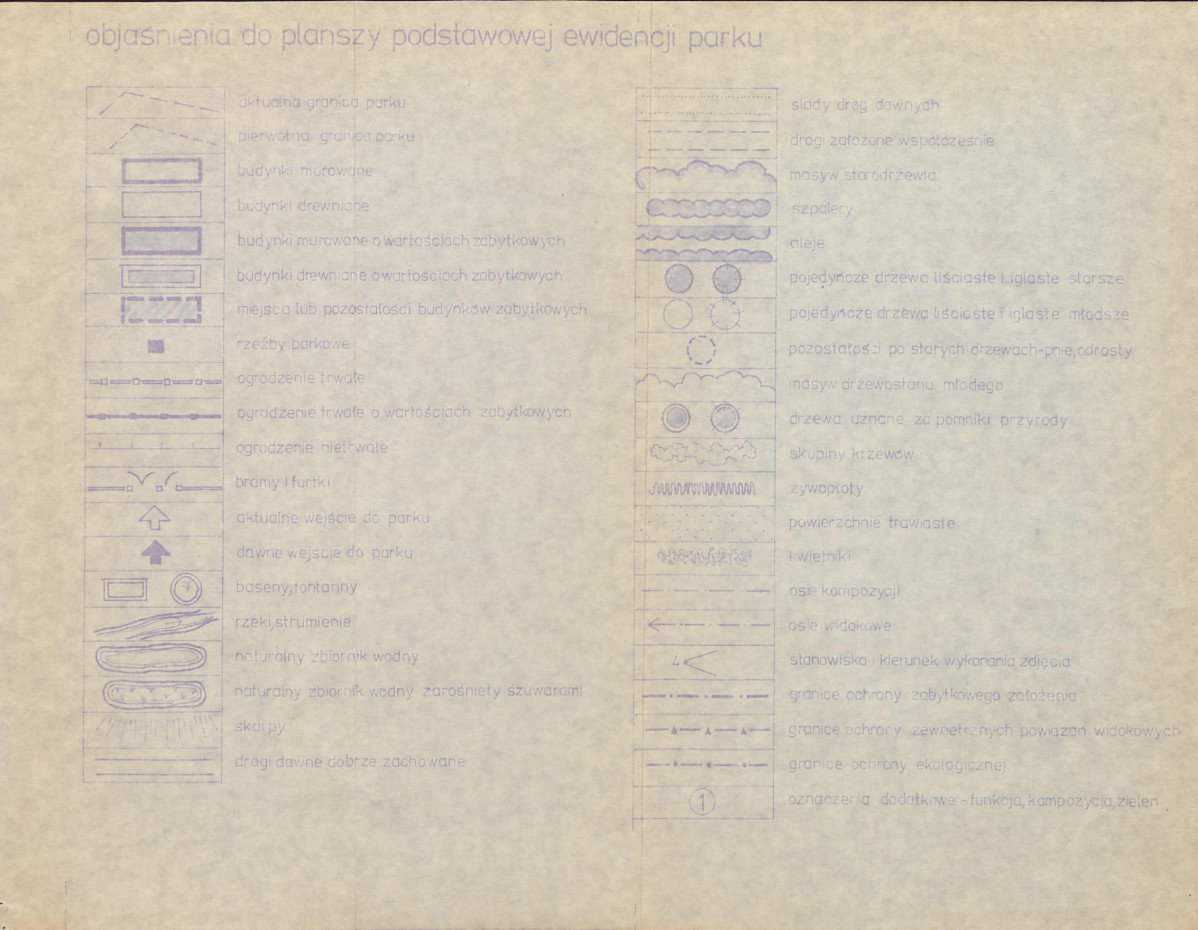 objaśnienia do planszy podstawowej ewidencji parku
aktualna granica parku
pierwotna granica parku
budynki murowane
budynki drewniane
budynki murowane o wartościach zabytkowych
budynki drewniane o wartościach zabytkowych
miejsca lub pozostałości budynków zabytkowych
rzeźby parkowe
ogrodzenie trwałe
ogrodzenie trwałe o wartościach zabytkowych
ogrodzenie nietrwałe
bramy i furtki
aktualne wejście do parku
dawne wejście do parku
baseny, fontanny
rzeki, strumienie
naturalny zbiornik wodny
naturalny zbiornik wodny zarośnięty szuwarami
skarpy
drogi dawne dobrze zachowane
ślady dróg dawnych
drogi założone współcześnie
masyw starodrzewia
szpalery
aleje
pojedyńcze drzewa liściaste i iglaste starsze
pojedyńcze drzewa liściaste i iglaste młodsze
pozostałości po starych drzewach-pnie, odrosty
masyw drzewostanu młodego
drzewa uznane za pomniki przyrody
skupiny krzewów
żywopłoty
powierzchnie trawiaste
kwietniki
osie kompozycji
osie widokowe
4 stanowisko i kierunek wykonania zdjęcia
granice ochrony zabytkowego założenia
granice ochrony zewnętrznych powiązań widokowych
granice ochrony ekologicznej
1 oznaczenia dodatkowe - funkcja, kompozycja, zieleń